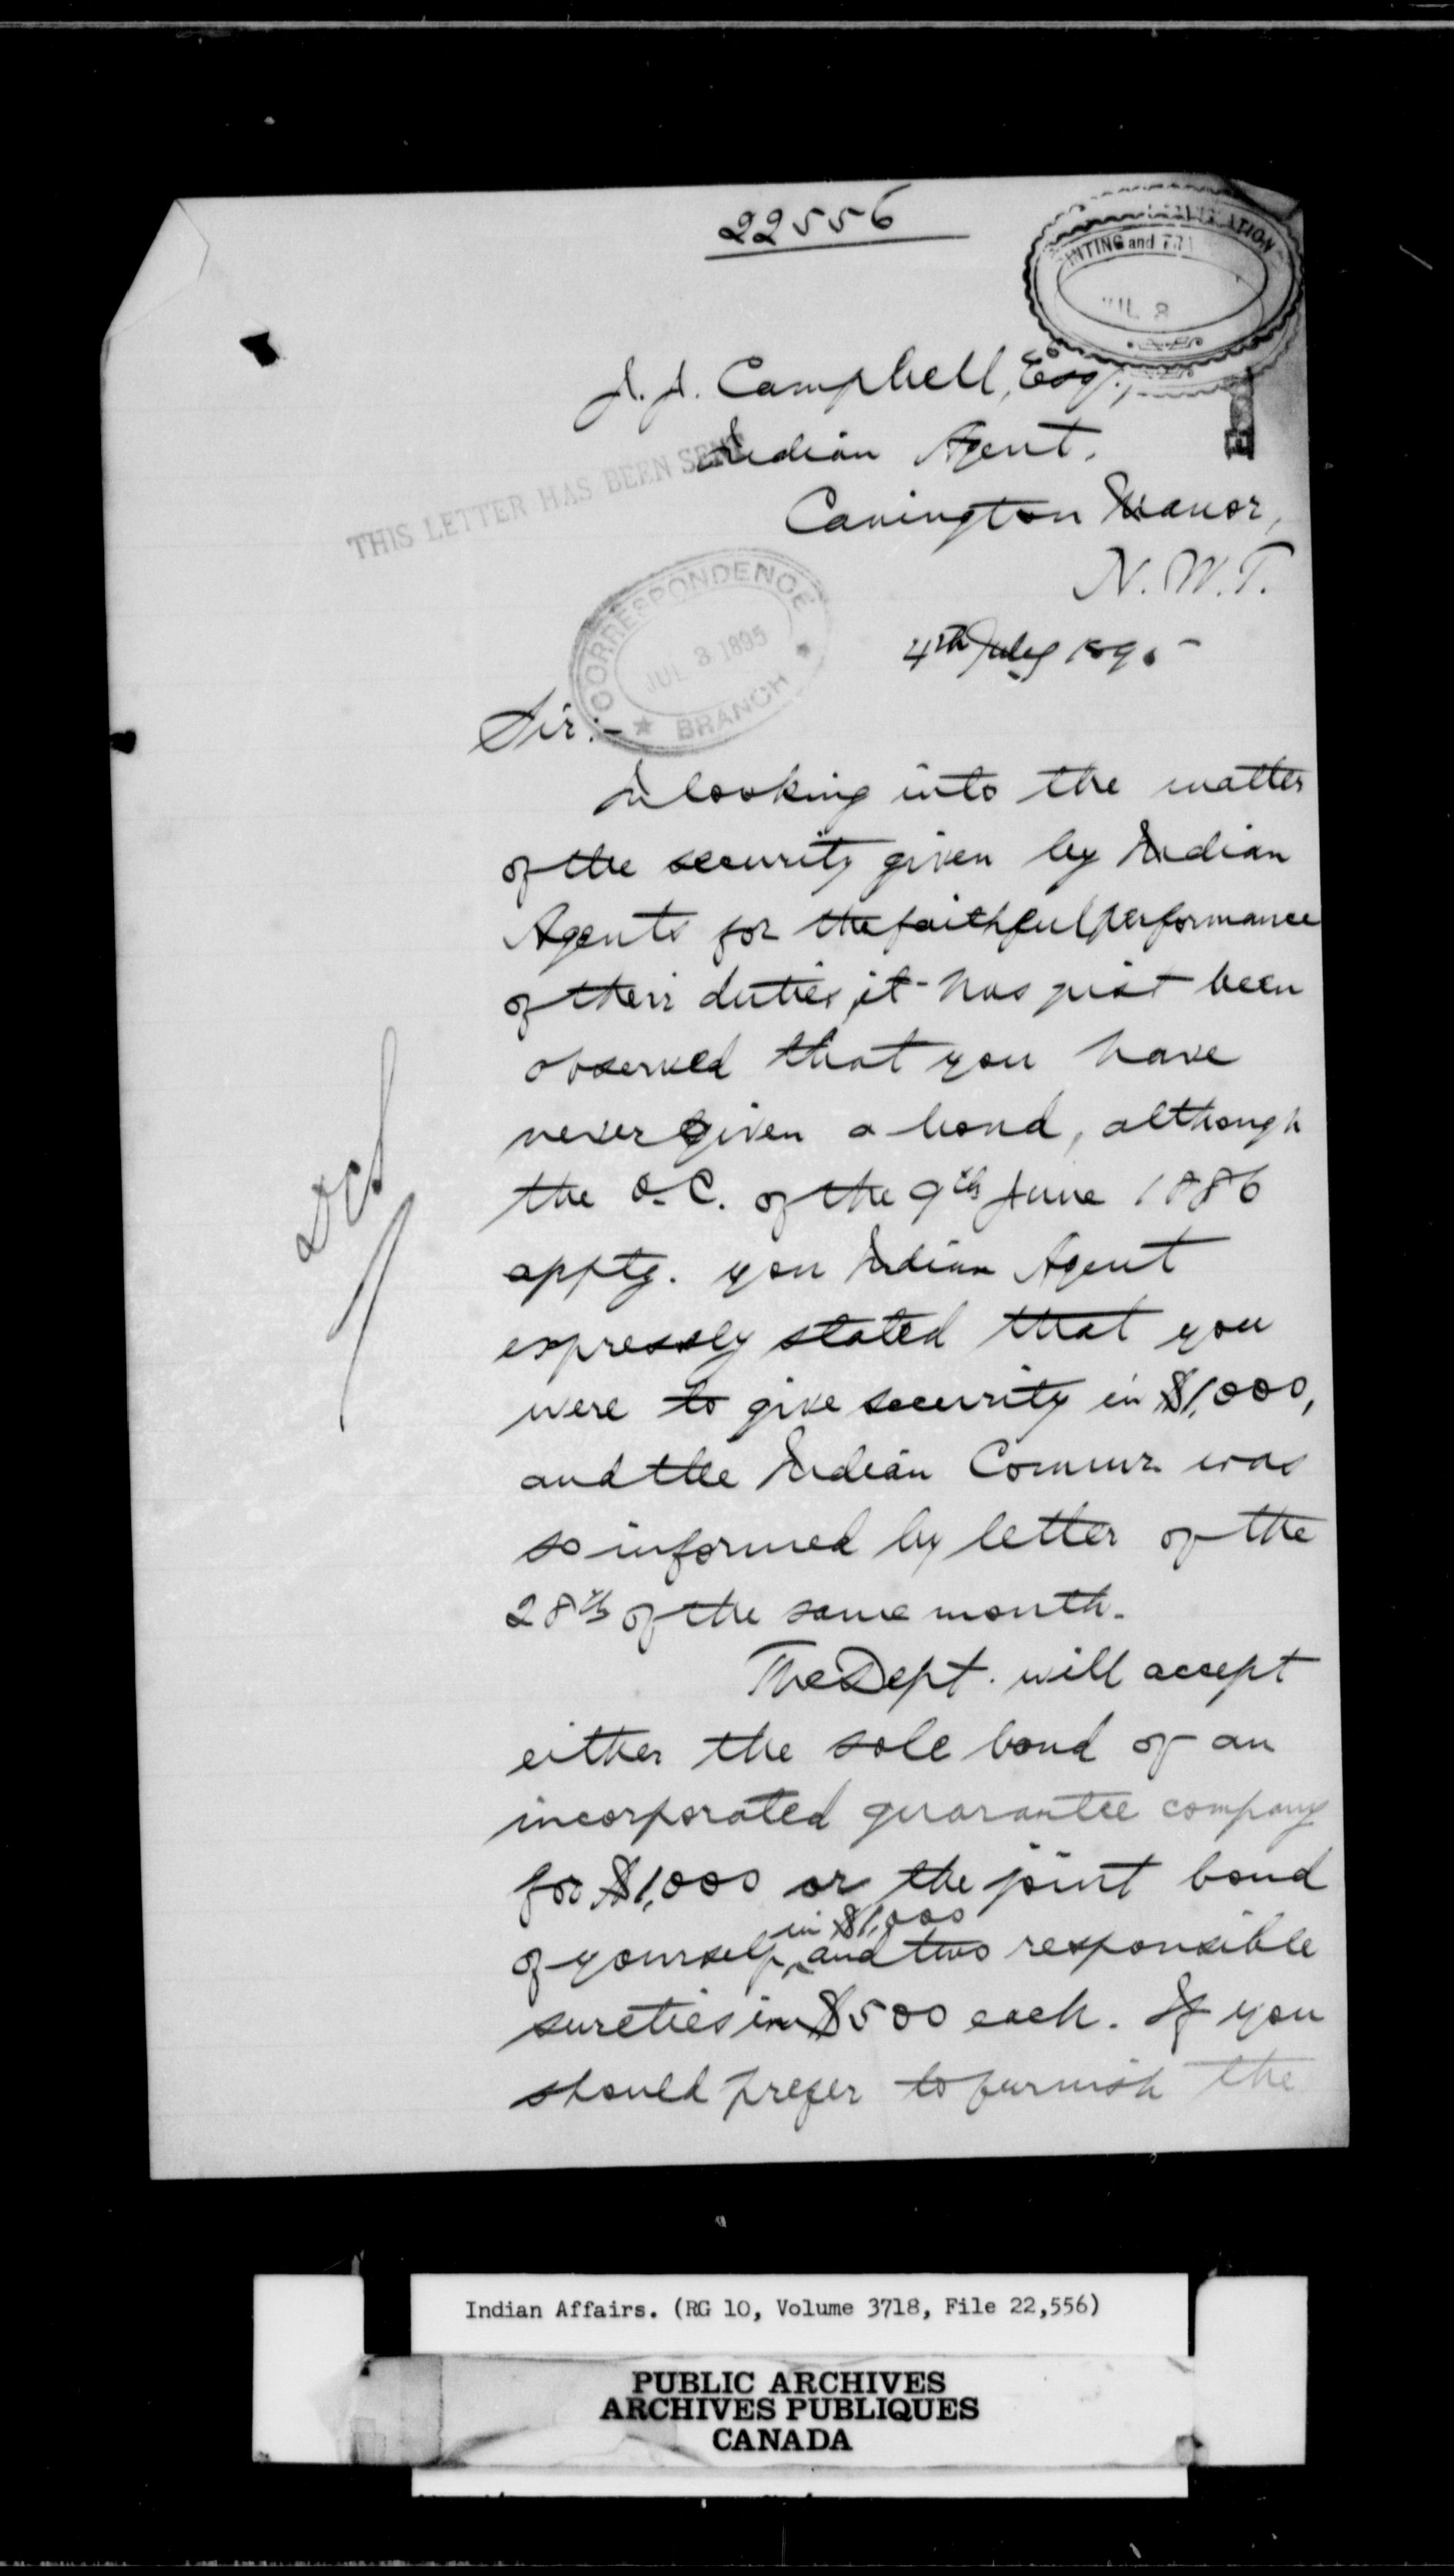 22556
INTING and
JUL 8
J. J. Campbell, Esq.,
Indian Agent,
Canington Manor,
N.W.T.
THIS LETTER HAS BEEN SENT
CORRESPONDENCE
JUL 3 1895
BRANCH
4th July 1895
Sir:-
In looking into the matter
of the security given by Indian
Agents for the faithful performance
of their duties, it has just been
observed that you have
never given a bond, although
the O.C. of the 9th June 1886
apptg. you Indian Agent
expressly stated that you
were to give security in $1,000,
and the Indian Commr was
so informed by letter of the
28th of the same month.
The Dept. will accept
either the sole bond of an
incorporated guarantee company
for $1,000 or the joint bond
of yourself in $1,000 and two responsible
sureties in $500 each. If you
should prefer to furnish the
Indian Affairs. (RG 10, Volume 3718, File 22,556)
PUBLIC ARCHIVES
ARCHIVES PUBLIQUES
CANADA